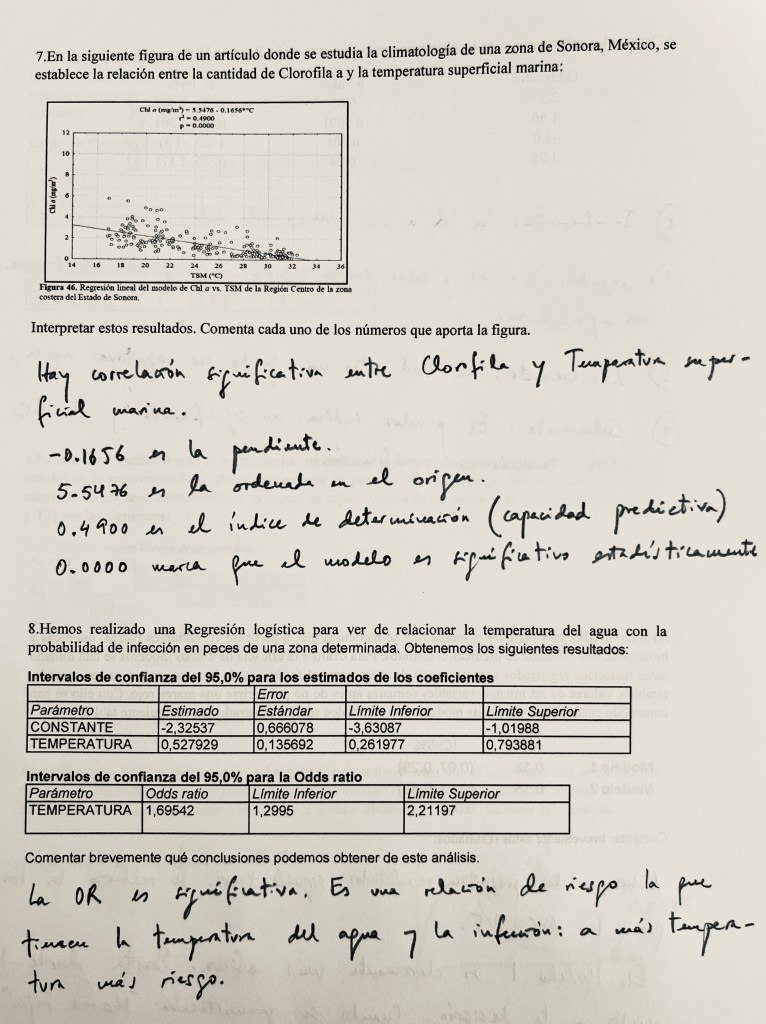 7.En la siguiente figura de un artículo donde se estudia la climatología de una zona de Sonora, México, se
establece la relación entre la cantidad de Clorofila a y la temperatura superficial marina:
Chl a (mg/m³) = 5.5476 - 0.1656*°C
r² = 0.4900
p = 0.0000
Chl a (mg/m³)
12
10
8
6
4
2
0
14 16 18 20 22 24 26 28 30 32 34 36
TSM (°C)
Figura 46. Regresión lineal del modelo de Chl a vs. TSM de la Región Centro de la zona
costera del Estado de Sonora.
Interpretar estos resultados. Comenta cada uno de los números que aporta la figura.
Hay correlación significativa entre Clorofila y Temperatura super-
ficial marina.
-0.1656 es la pendiente.
5.5476 es la ordenada en el origen.
0.4900 es el índice de determinación (capacidad predictiva)
0.0000 marca que el modelo es significativo estadísticamente
8.Hemos realizado una Regresión logística para ver de relacionar la temperatura del agua con la
probabilidad de infección en peces de una zona determinada. Obtenemos los siguientes resultados:
Intervalos de confianza del 95,0% para los estimados de los coeficientes
Error
Parámetro Estimado Estándar Límite Inferior Límite Superior
CONSTANTE -2,32537 0,666078 -3,63087 -1,01988
TEMPERATURA 0,527929 0,135692 0,261977 0,793881
Intervalos de confianza del 95,0% para la Odds ratio
Parámetro Odds ratio Límite Inferior Límite Superior
TEMPERATURA 1,69542 1,2995 2,21197
Comentar brevemente qué conclusiones podemos obtener de este análisis.
La OR es significativa. Es una relación de riesgo la que
tienen la temperatura del agua y la infección: a más tempera-
tura más riesgo.